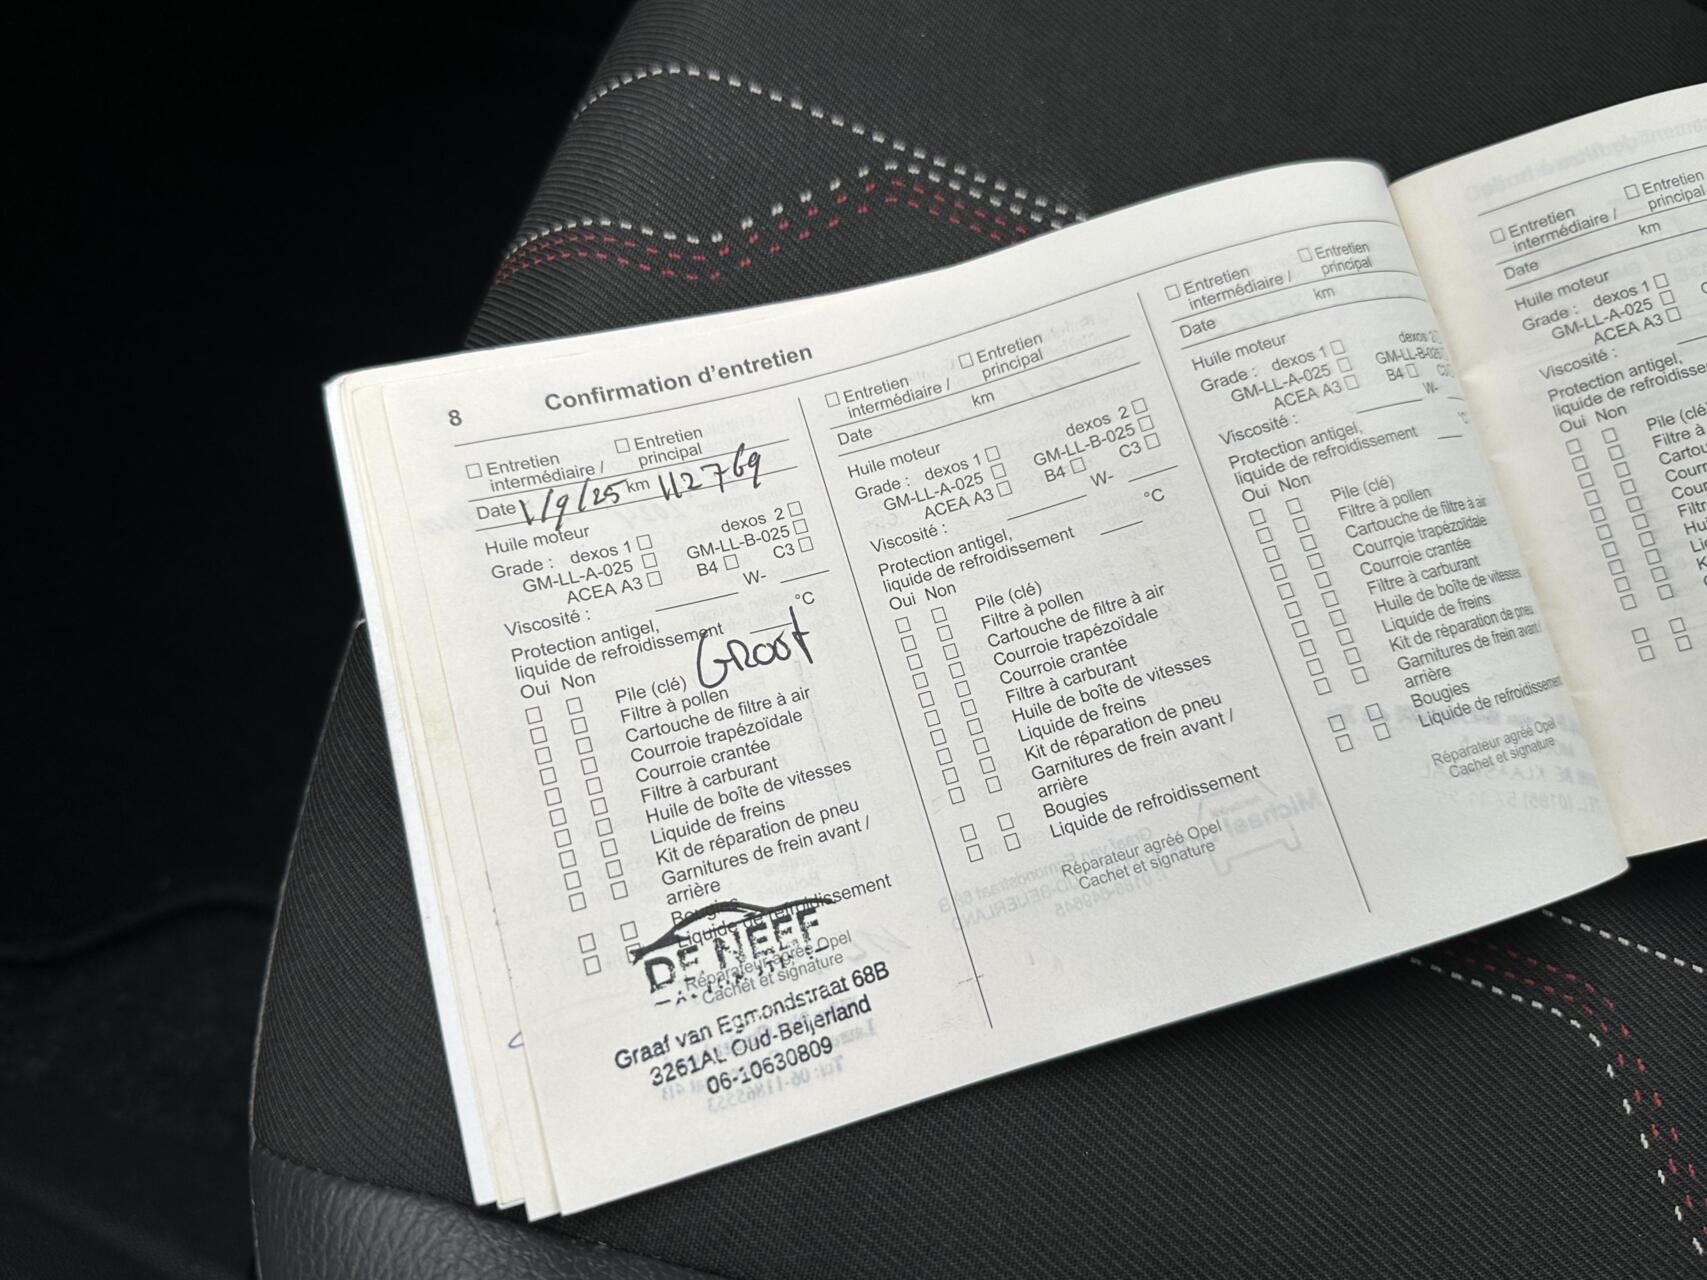 8 Confirmation d'entretien
☐ Entretien intermédiaire / ☐ Entretien principal
Date 1/9/25 km 112769
Huile moteur
Grade : dexos 1 ☐ dexos 2 ☐
GM-LL-A-025 ☐ GM-LL-B-025 ☐
ACEA A3 ☐ B4 ☐ C3 ☐
Viscosité : W-
Protection antigel,
liquide de refroidissement °C
GROOT
Oui Non
Pile (clé)
Filtre à pollen
Cartouche de filtre à air
Courroie trapézoïdale
Courroie crantée
Filtre à carburant
Huile de boîte de vitesses
Liquide de freins
Kit de réparation de pneu
Garnitures de frein avant /
arrière
Bougies
Liquide de refroidissement
Réparateur agréé Opel
Cachet et signature
DE NEEF
Graaf van Egmondstraat 68B
3261AL Oud-Beijerland
06-10630809
☐ Entretien intermédiaire / ☐ Entretien principal
Date km
Huile moteur
Grade : dexos 1 ☐ dexos 2 ☐
GM-LL-A-025 ☐ GM-LL-B-025 ☐
ACEA A3 ☐ B4 ☐ C3 ☐
Viscosité : W-
Protection antigel,
liquide de refroidissement °C
Oui Non
Pile (clé)
Filtre à pollen
Cartouche de filtre à air
Courroie trapézoïdale
Courroie crantée
Filtre à carburant
Huile de boîte de vitesses
Liquide de freins
Kit de réparation de pneu
Garnitures de frein avant /
arrière
Bougies
Liquide de refroidissement
Réparateur agréé Opel
Cachet et signature
☐ Entretien intermédiaire / ☐ Entretien principal
Date km
Huile moteur
Grade : dexos 1 ☐ dexos 2
GM-LL-A-025 ☐ GM-LL-B-025
ACEA A3 ☐ B4 ☐
Viscosité : W-
Protection antigel,
liquide de refroidissement
Oui Non
Pile (clé)
Filtre à pollen
Cartouche de filtre à air
Courroie trapézoïdale
Courroie crantée
Filtre à carburant
Huile de boîte de vitesses
Liquide de freins
Kit de réparation de pneu
Garnitures de frein avant /
arrière
Bougies
Liquide de refroidissement
Réparateur agréé Opel
Cachet et signature
☐ Entretien intermédiaire / ☐ Entretien principal
Date km
Huile moteur
Grade : dexos 1 ☐
GM-LL-A-025 ☐
ACEA A3 ☐
Viscosité :
Protection antigel,
Oui Non
Pile (clé)
Filtre à